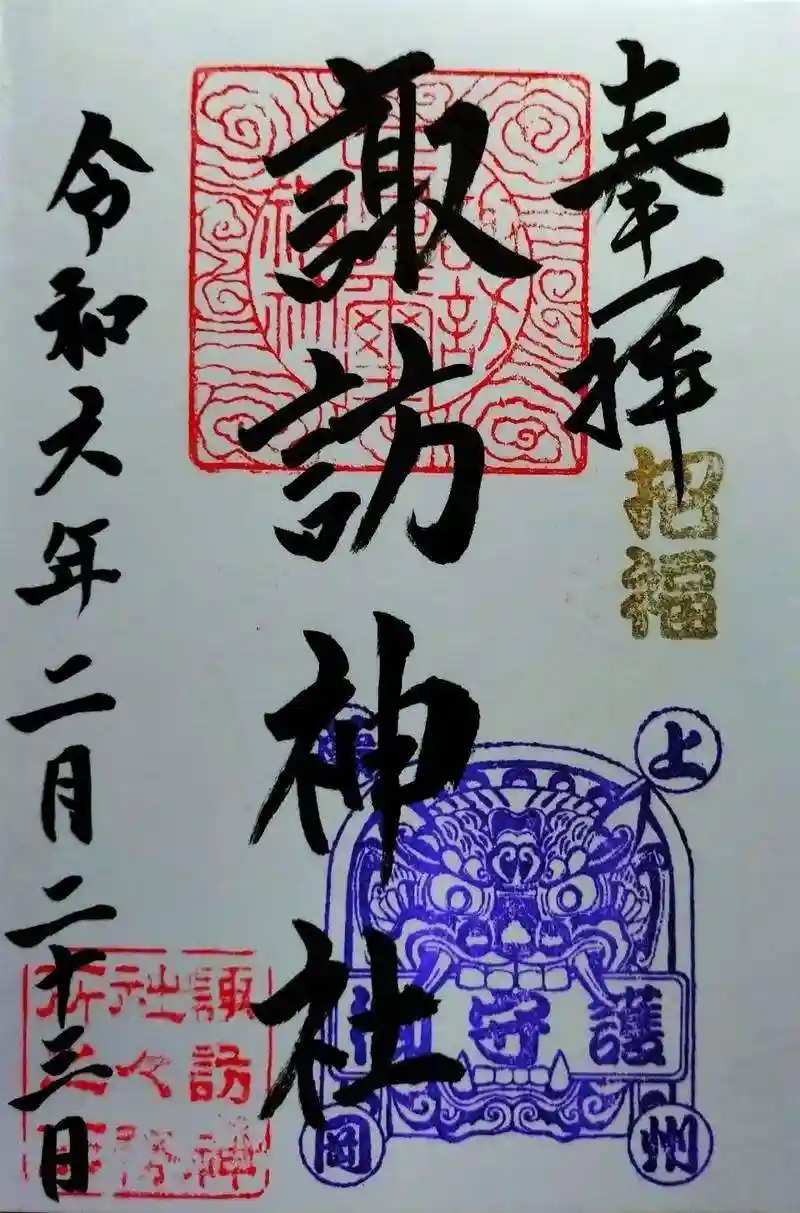 奉拝
招福
諏訪神社
上
州
岡
護守御
諏訪神
社々務
令和六年二月二十三日